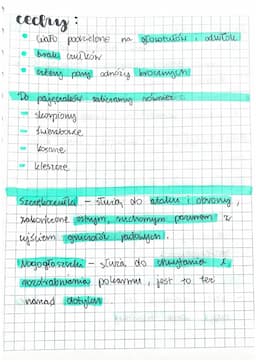 cechy:
• ciało podzielone na głowotułów i odwłok
• brak czułków
• cztery pary odnóży krocznych
Do pajęczaków zaliczamy również:
- skorpiony
- kosarze
- kleszcze
Szczękoczułki – służą do ataku i obrony,
zakończone ostrym, ruchomym pazurem z
ujściem gruczołów jadowych.
Nogogłaszczki – służą do chwytania i
rozdrabniania pokarmu, jest to też
narząd dotyku